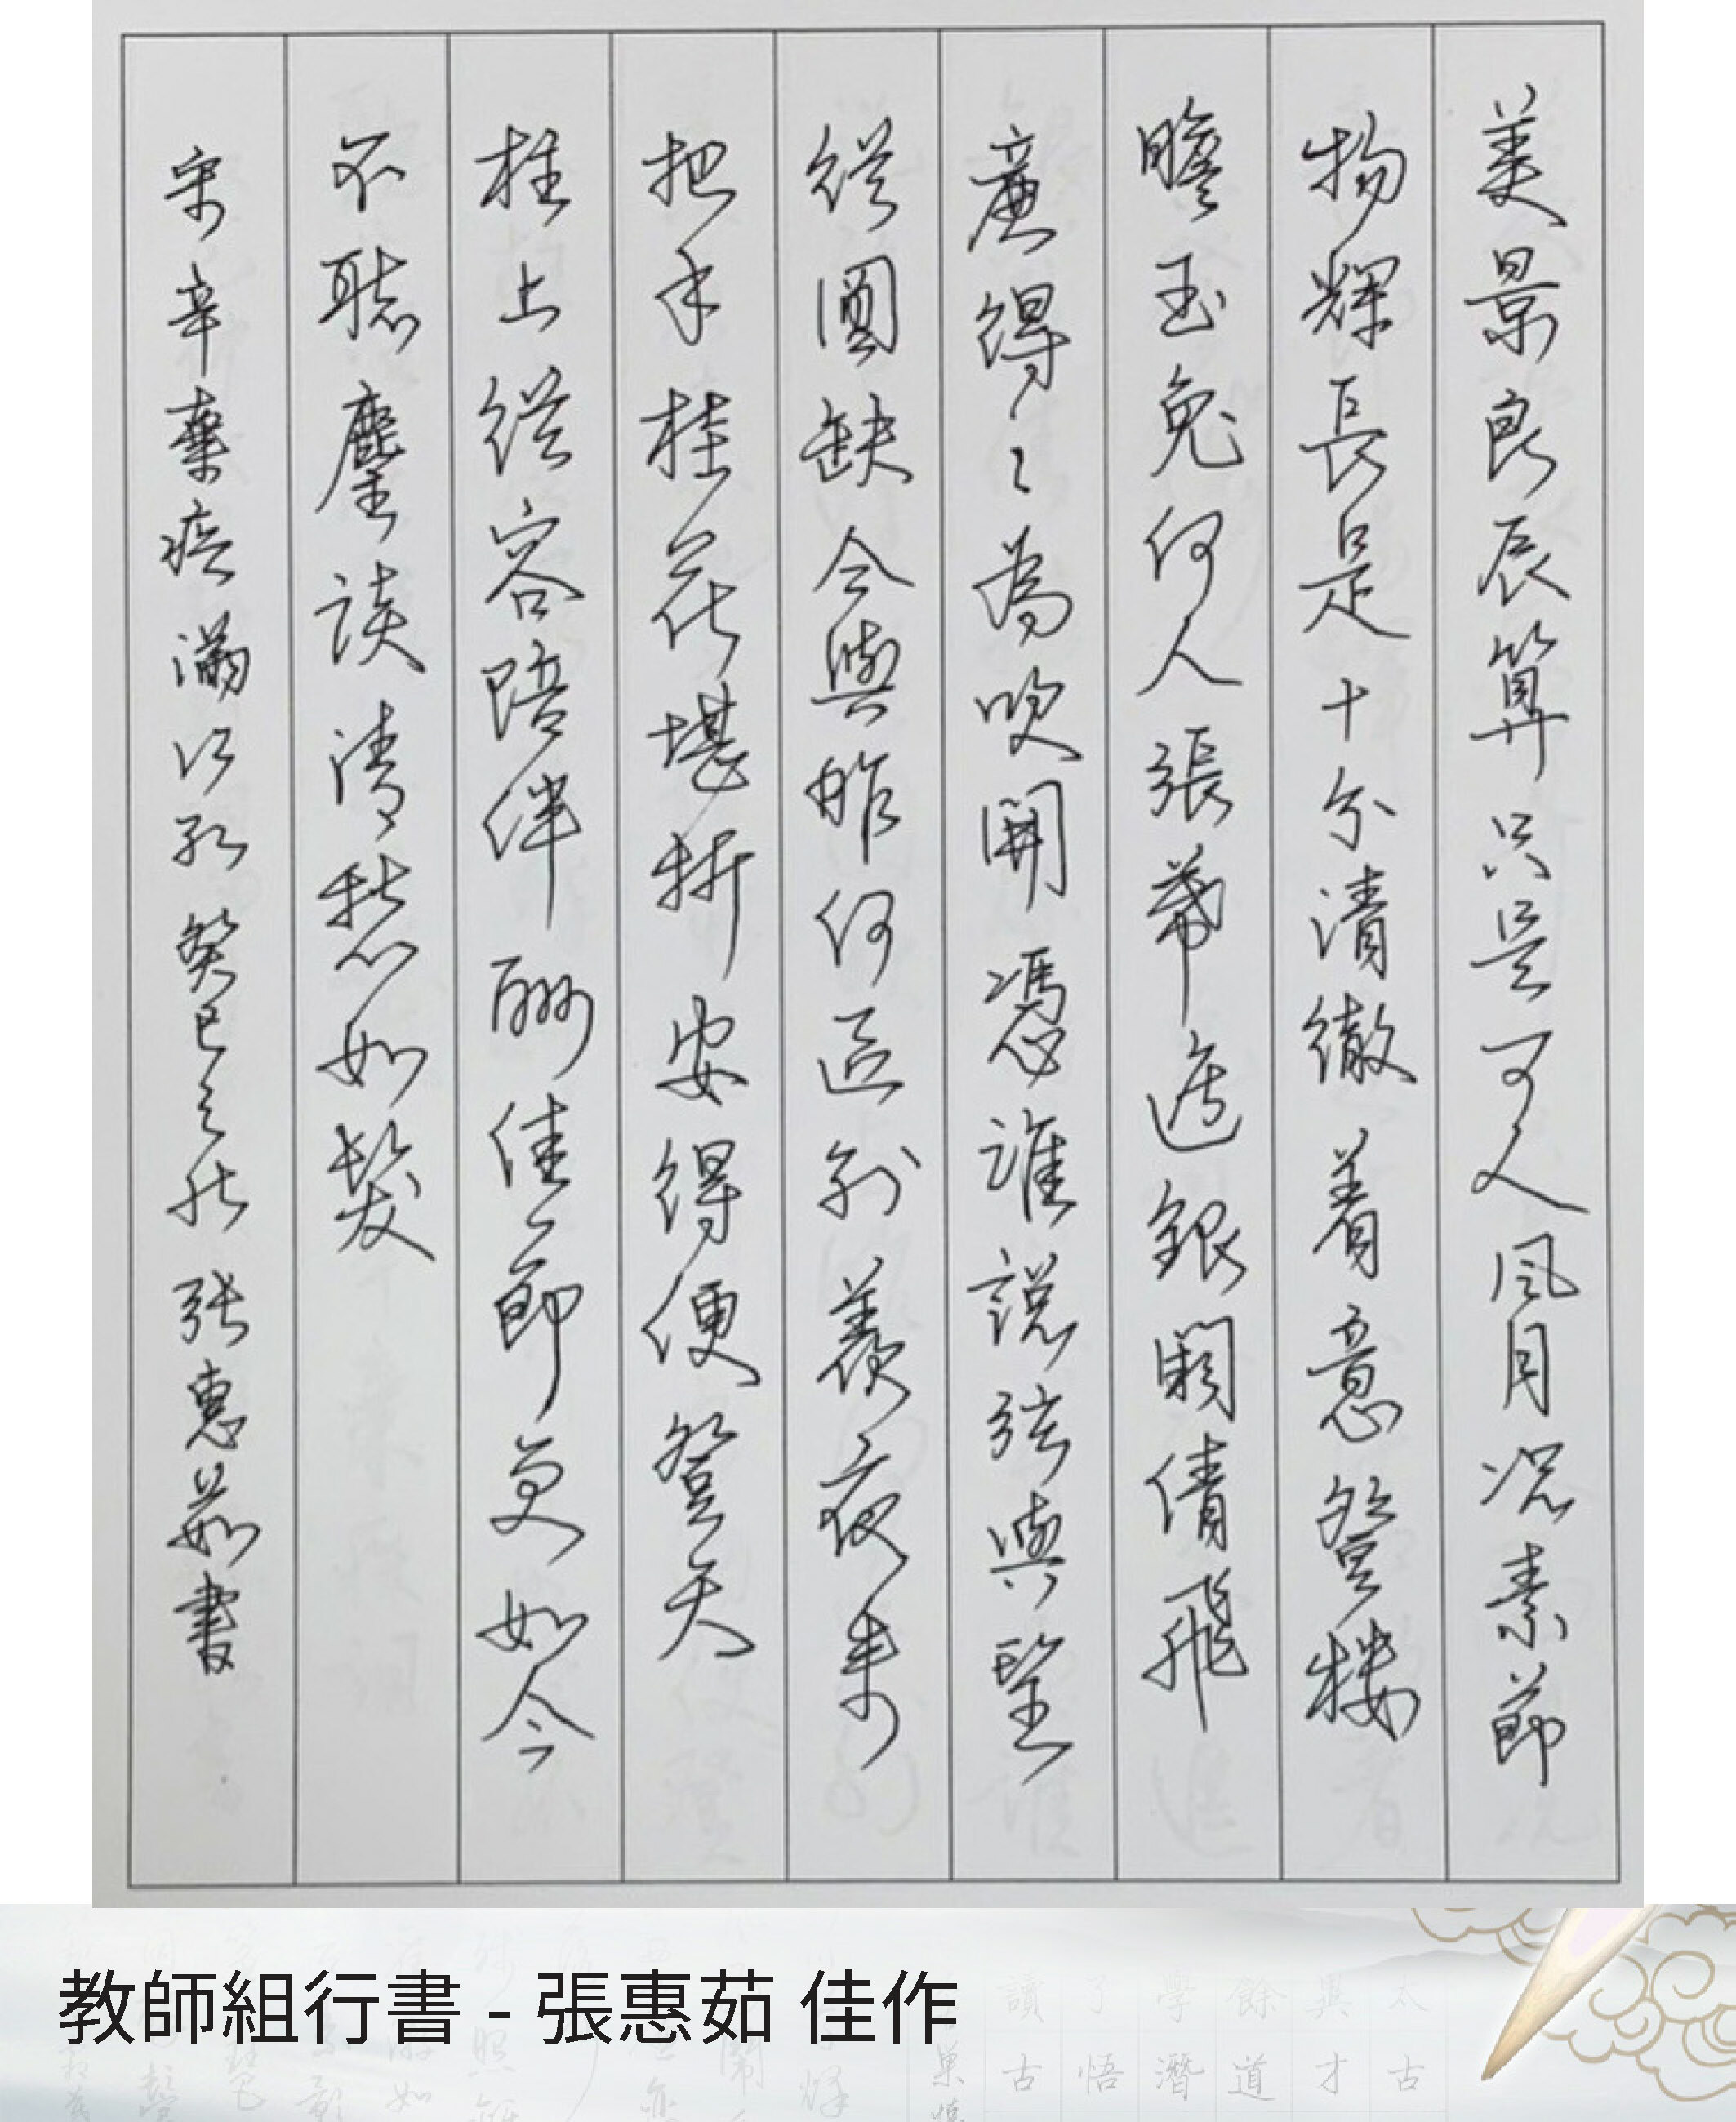 美景良辰算只是可人風月況素節
物輝長是十分清徹着意登樓
瞻玉兔何人張幕遮銀闕倩飛
廉得得為吹開憑誰說弦與望
從圓缺今與昨何區別羨夜來
把手桂花堪折安得便登天
柱上從容陪伴酬佳節更如今
不聽麈談清愁如髮
宋辛棄疾滿江紅 癸巳之秋 張惠茹書
教師組行書 - 張惠茹 佳作